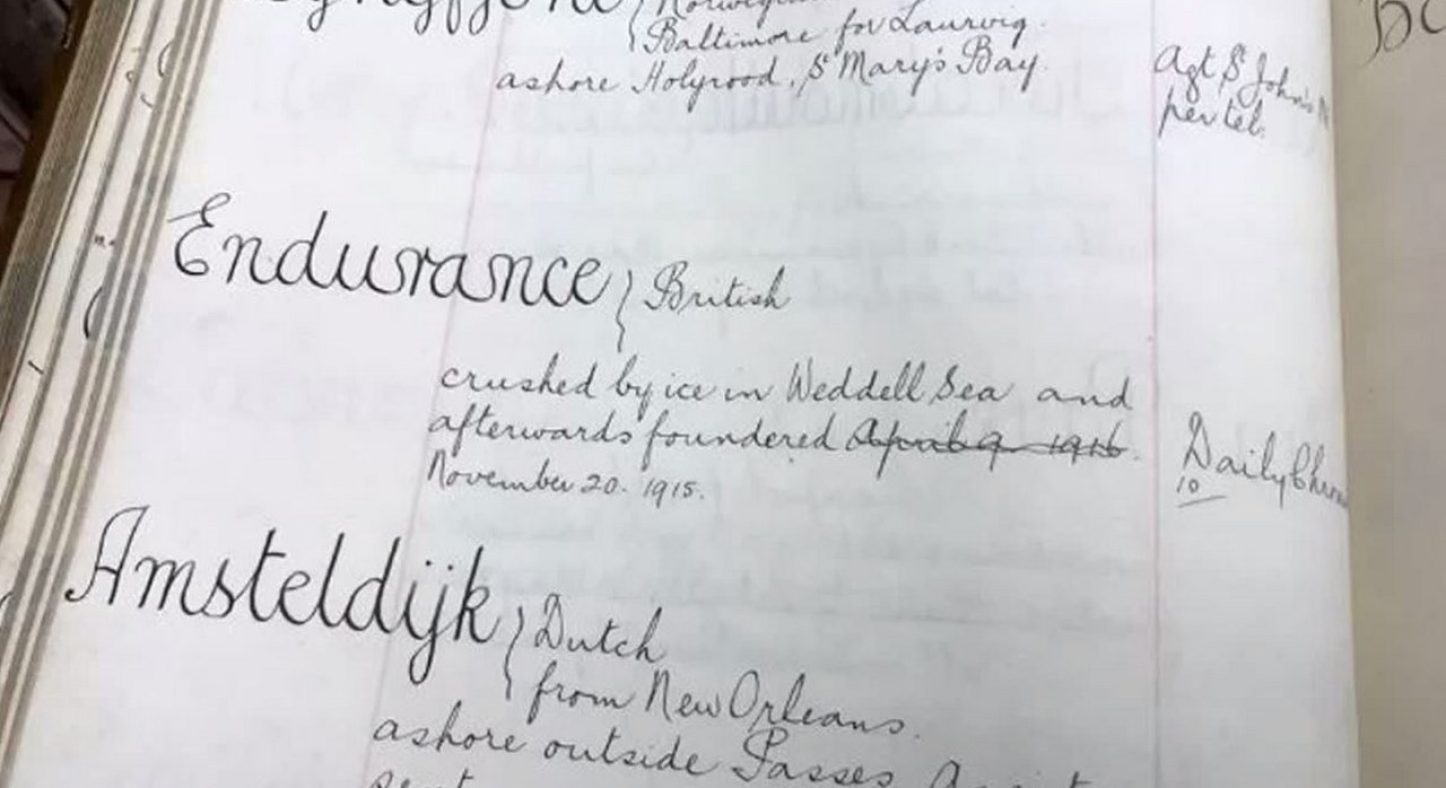 Baltimore for Laurvig.
ashore Holyrood, St Mary's Bay.
Agt St John's
per tel.
Endurance } British
crushed by ice in Weddell Sea and
afterwards foundered April 9 1916.
November 20. 1915.
Daily Chron
10
Amsteldijk } Dutch
from New Orleans.
ashore outside Passes